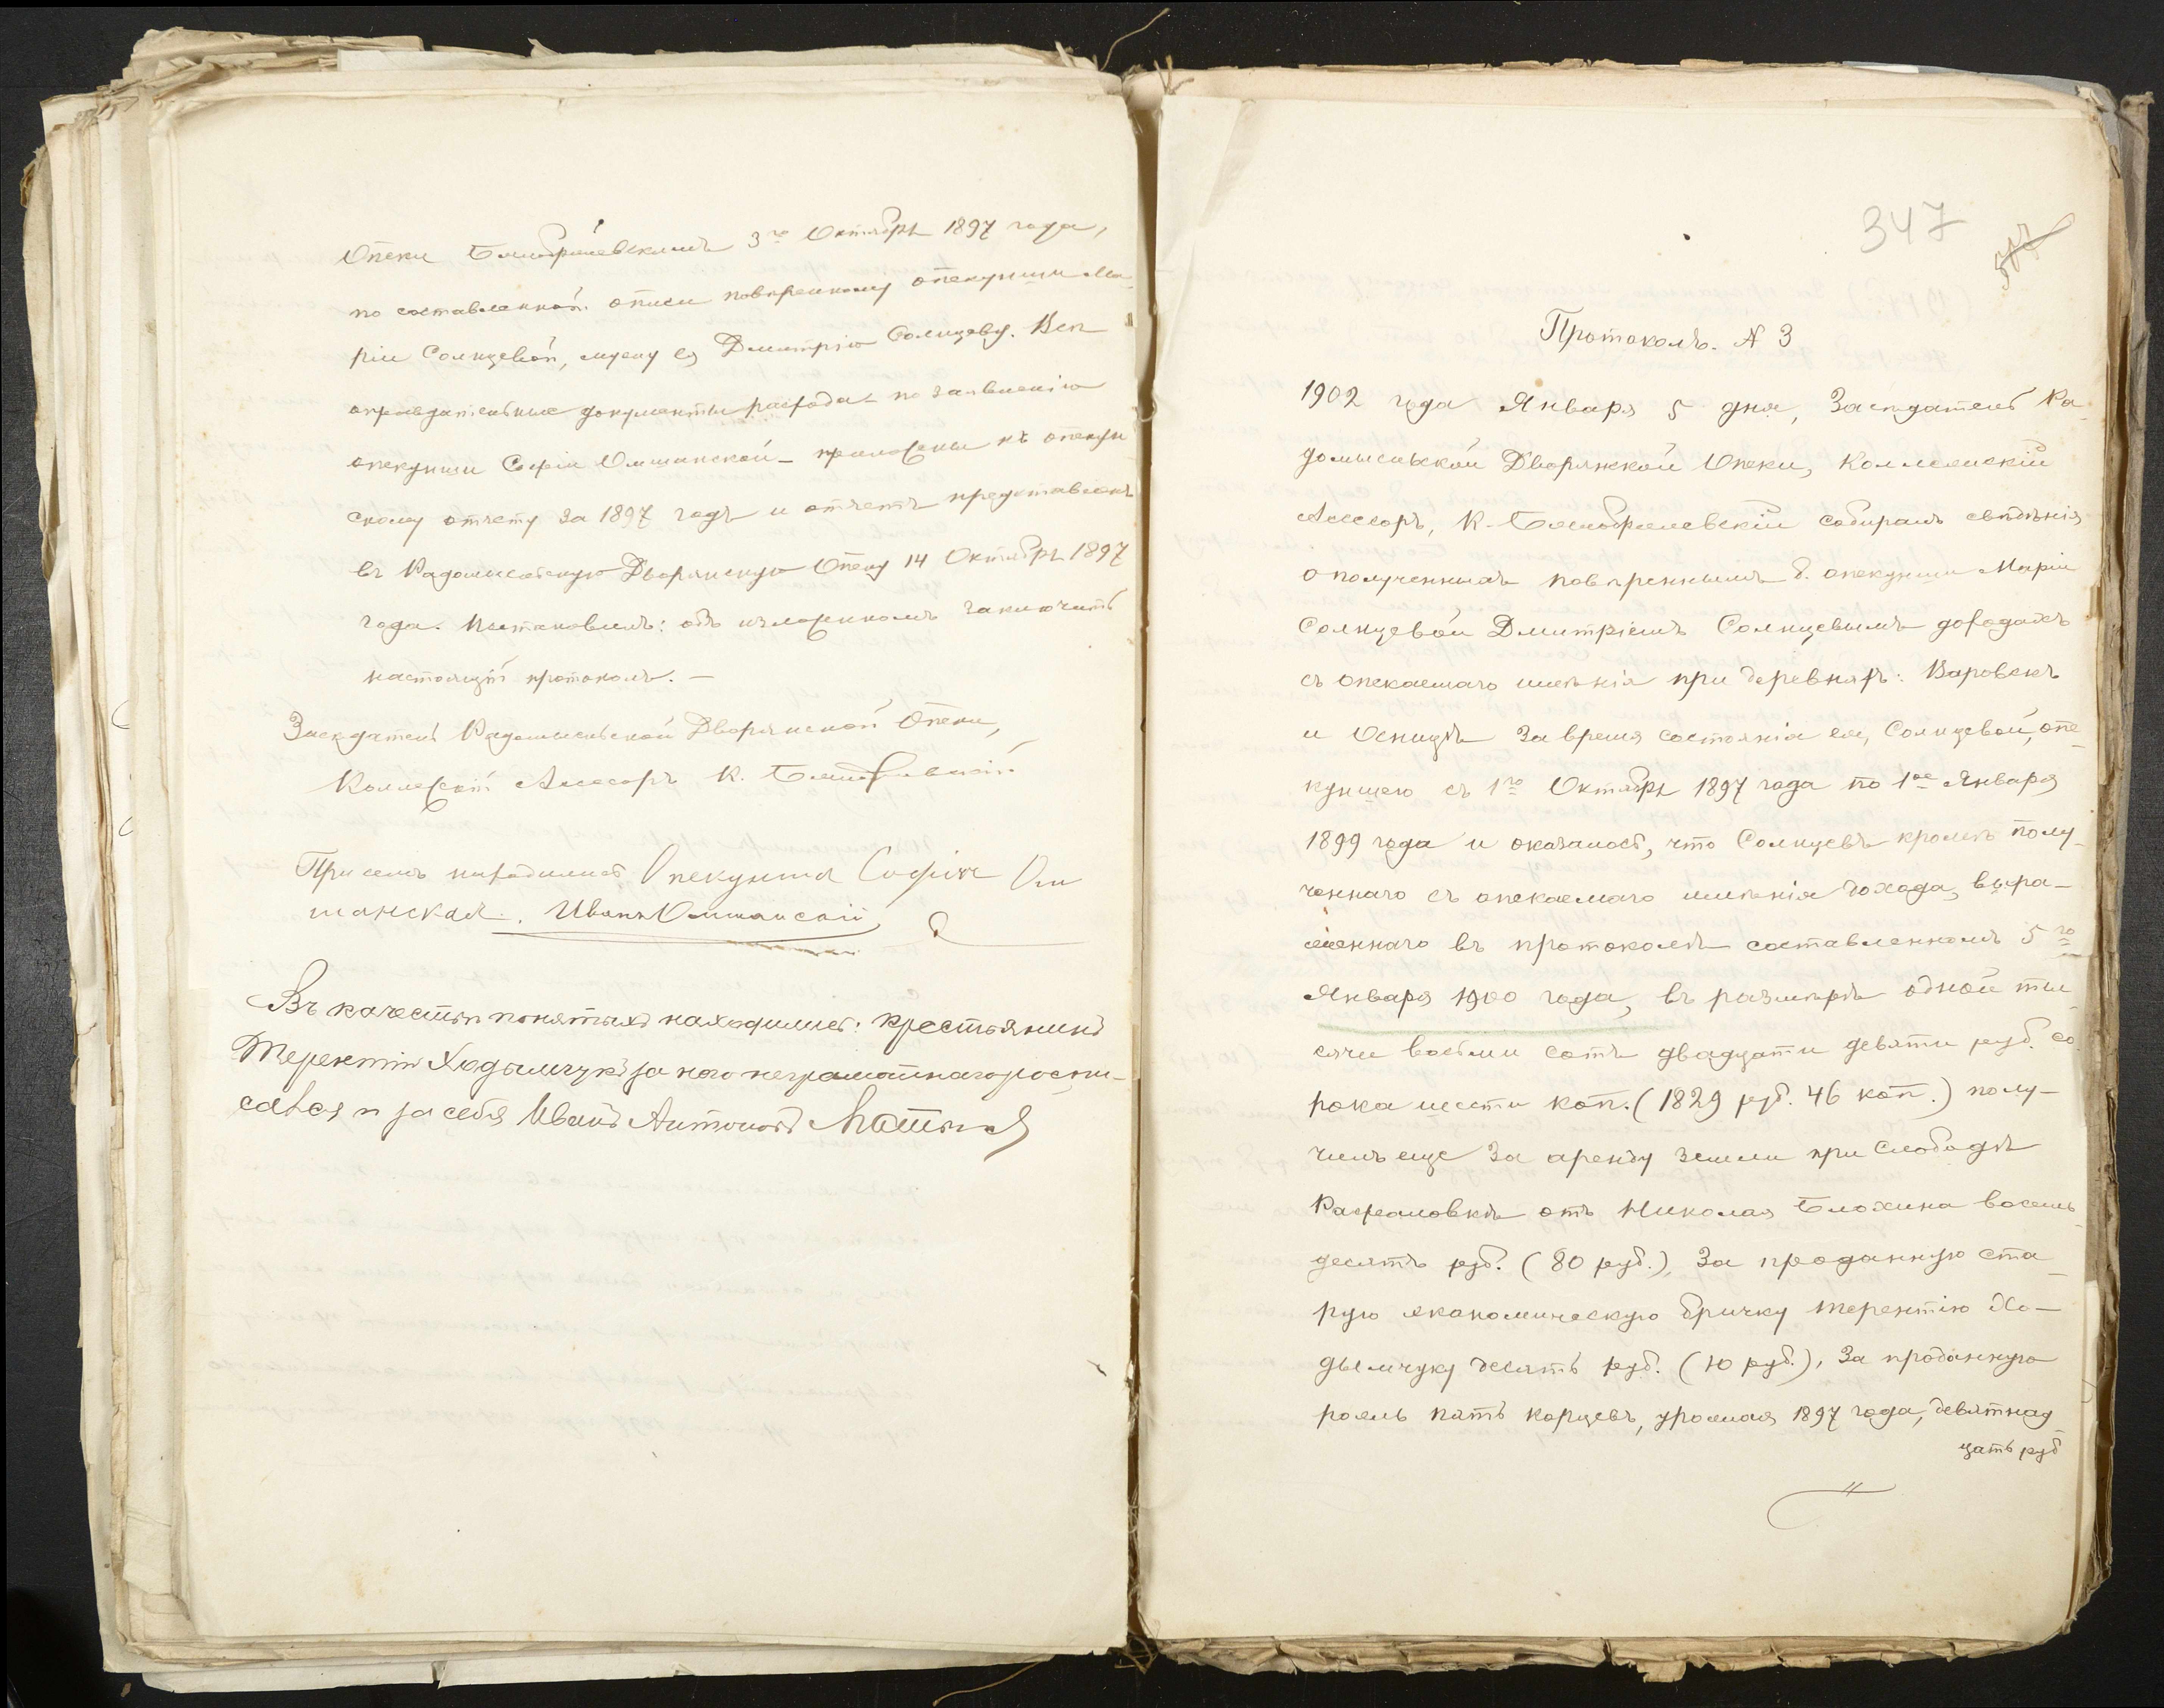 Опеки 3го Октября 1897 года,
по составленной описи повѣренному опекунши Ма-
ріи Солнцевой, мужу ея Дмитрію Солнцеву. Всѣ
оправдательные документы расхода по заявленію
опекунши Софіи Ольшанской – приложены къ опекун
скому отчету за 1897 годъ и отчетъ представленъ
въ Радомысльскую Дворянскую Опеку 14 Октября 1897
года. Постановилъ: объ изложенномъ заключить
настоящій протоколъ. –
Засѣдатель Радомысльской Дворянской Опеки,
Коллежскій Ассесоръ К.
При семъ находились Опекунша Софія Оль
шанская. Иванъ Ольшанскій
Въ качествѣ понятыхъ находились: крестьянинъ
Терентій Ходымчукъ за него неграмотнаго роспи-
сался и за себя Иванъ Антоновъ
347
Протоколъ. № 3
1902 года Января 5 дня, Засѣдатель Ра-
домысльской Дворянской Опеки, Коллежскій
Ассесоръ, К. собиралъ свѣдѣнія
о полученныхъ повѣреннымъ б. опекунши Маріи
Солнцевой Дмитріемъ Солнцевымъ доходахъ
съ опекаемаго имѣнія при деревняхъ: Воровскъ
и Осницѣ за время состоянія ея, Солнцевой, опе-
куншею съ 1го Октября 1897 года по 1ое Января
1899 года и оказалось, что Солнцевъ кромѣ полу-
ченнаго съ опекаемаго имѣнія дохода, выра-
женнаго въ протоколѣ составленномъ 5го
Января 1900 года, въ размѣрѣ одной ты
сячи восьми сотъ двадцати девяти руб. со-
рока шести коп. (1829 руб. 46 коп.) полу-
чилъ еще за аренду земли при слободѣ
Рафаловкѣ отъ Николая Блохина восемь-
десятъ руб. (80 руб.), за проданную ста-
рую экономическую бричку Терентію Хо-
дымчуку десять руб. (10 руб.), за проданную
рожь пять корцевъ, урожая 1897 года, девятнад-
цать руб